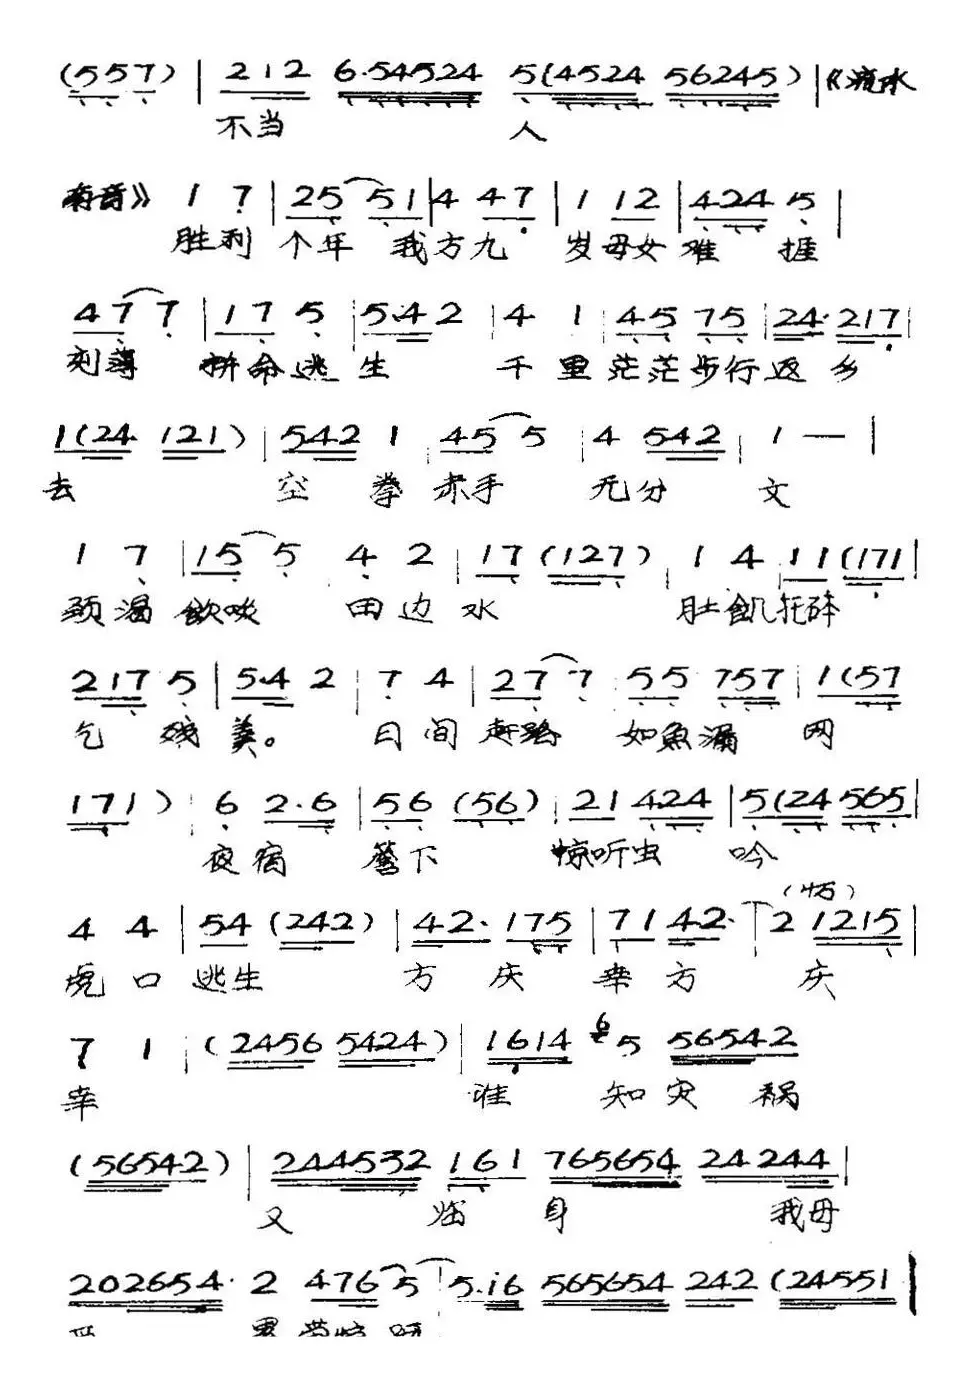 (557) | 212 6·54524 5(4524 56245) | 《流水
不当 人
南音》 1 7 | 25 51 | 4 47 | 1 12 | 424 5 |
胜利 个年 我方九 岁母女 难 捱
47 7 | 17 5 | 5·42 | 4 1 | 45 75 | 24·217 |
刻薄 拼命逃生 千里茫茫步行返乡
1(24 121) | 542 1 | 45 5 | 4 542 | 1 — |
去 空拳赤手 无分文
1 7 | 15 5 4 2 | 17 (127) | 1 4 | 11 (171 |
颈渴飲啖 田边水 肚飢托砵
217 5 | 5·4 2 | 7 4 | 27 7 55 757 | 1(57
乞残羹。 日间赶路 如魚漏网
171) | 6 2·6 | 56 (56) | 21 424 | 5(24 565 |
夜宿 簷下 惊听虫吟
4 4 | 54 (242) | 42· 175 | 71 42· | 2 1215 |
虎口逃生 方庆幸方庆
7 1 | (2456 5424) | 1614 6 5 56542
幸 谁知灾祸
(56542) | 244532 161 765654 24244 |
又临身 我母
202654· 2 476 5 | 5·i6 565654 242 (24551 |